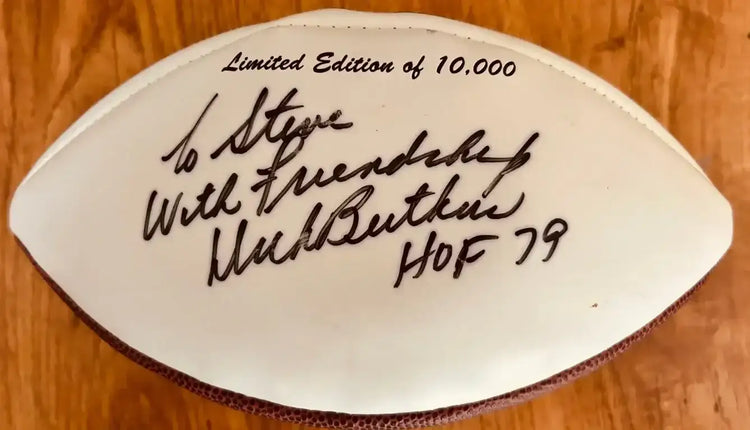 Limited Edition of 10,000
To Steve
With Friendship
Dick Butkus
HOF 79